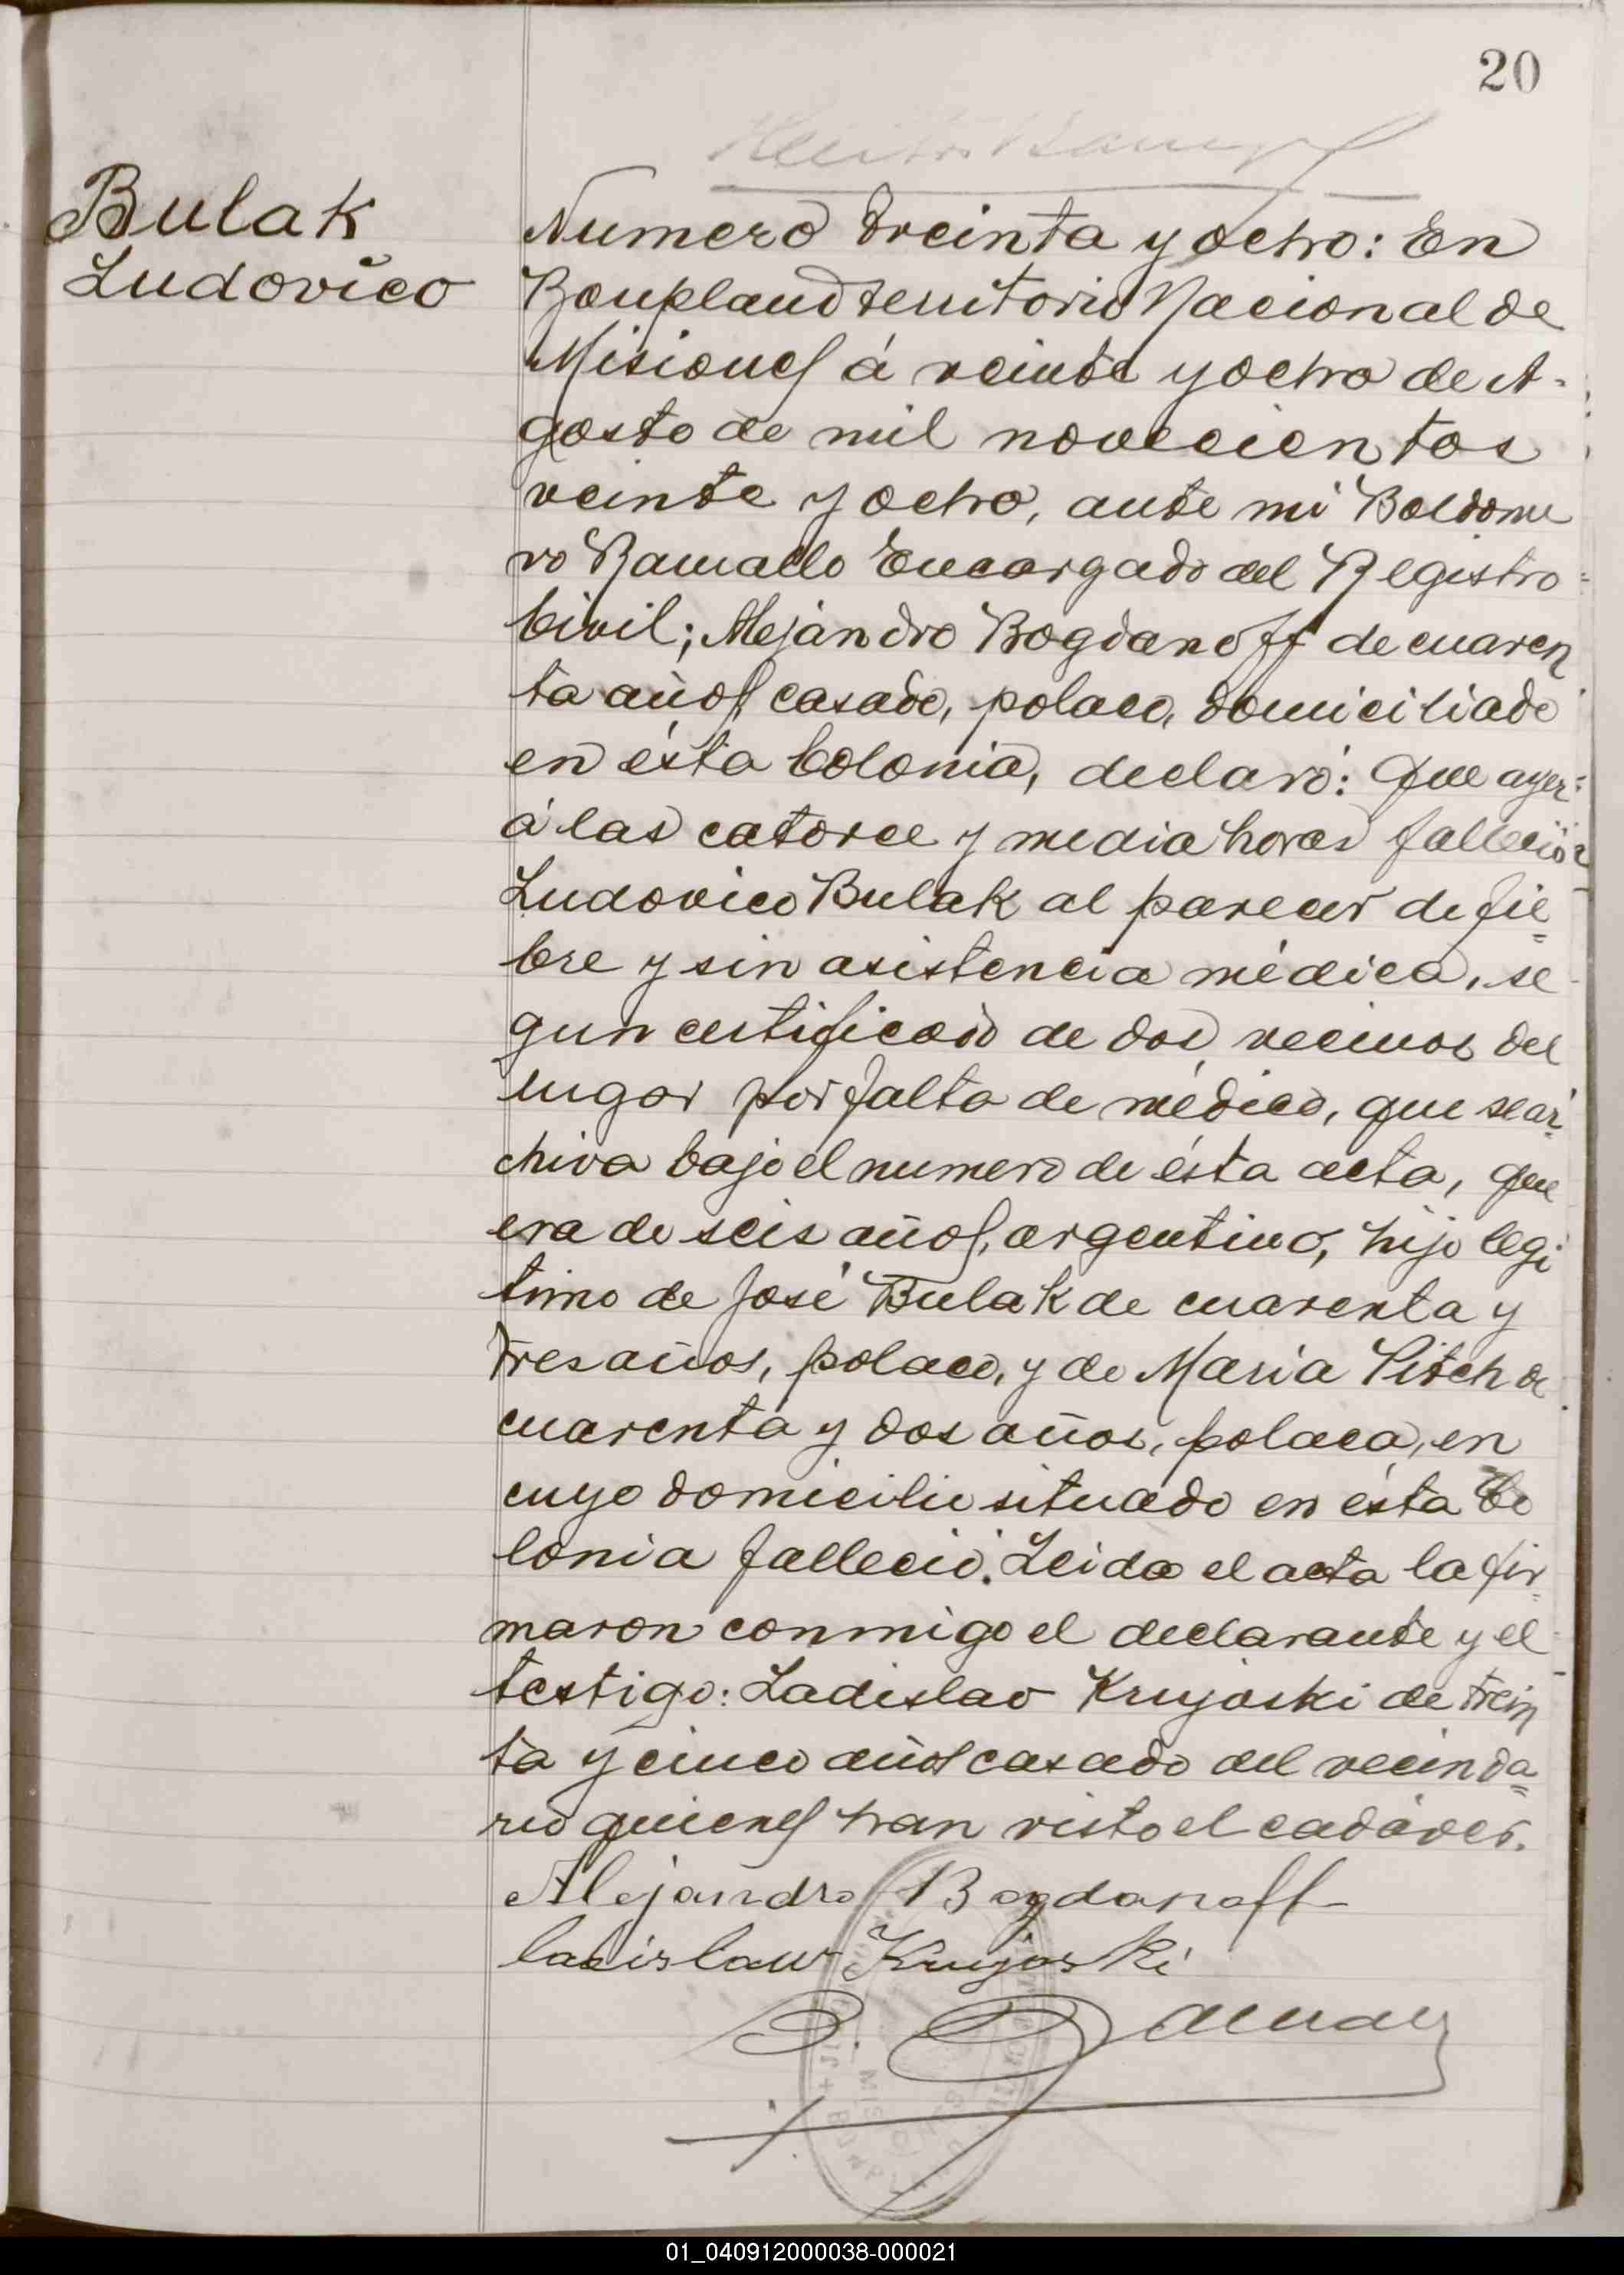 20
Bulak
Ludovico
Numero treinta y ocho: En
Bonpland territorio Nacional de
Misiones á veinte y ocho de A-
gosto de mil novecientos
veinte y ocho, ante mi Baldome
ro Ramallo Encargado del Registro
Civil; Alejandro Bogdanoff de cuaren
ta años, casado, polaco, domiciliado
en ésta Colonia, declaró: Que ayer
á las catorce y media horas falleció
Ludovico Bulak al parecer de fie=
bre y sin asistencia médica, se
gun certificado de dos vecinos del
lugar por falta de médico, que se ar
chiva bajo el numero de ésta acta, que
era de seis años, argentino, hijo legi
timo de José Bulak de cuarenta y
tres años, polaco, y de Maria Pitch de
cuarenta y dos años, polaca, en
cuyo domicilio situado en ésta Co
lonia falleció. Leida el acta la fir=
maron conmigo el declarante y el
testigo: Ladislao Krujoski de trein
ta y cinco años casado del vecinda=
rio quienes han visto el cadáver.
Alejandro Bogdanoff
Ladislaw Krujoski
01_040912000038-000021